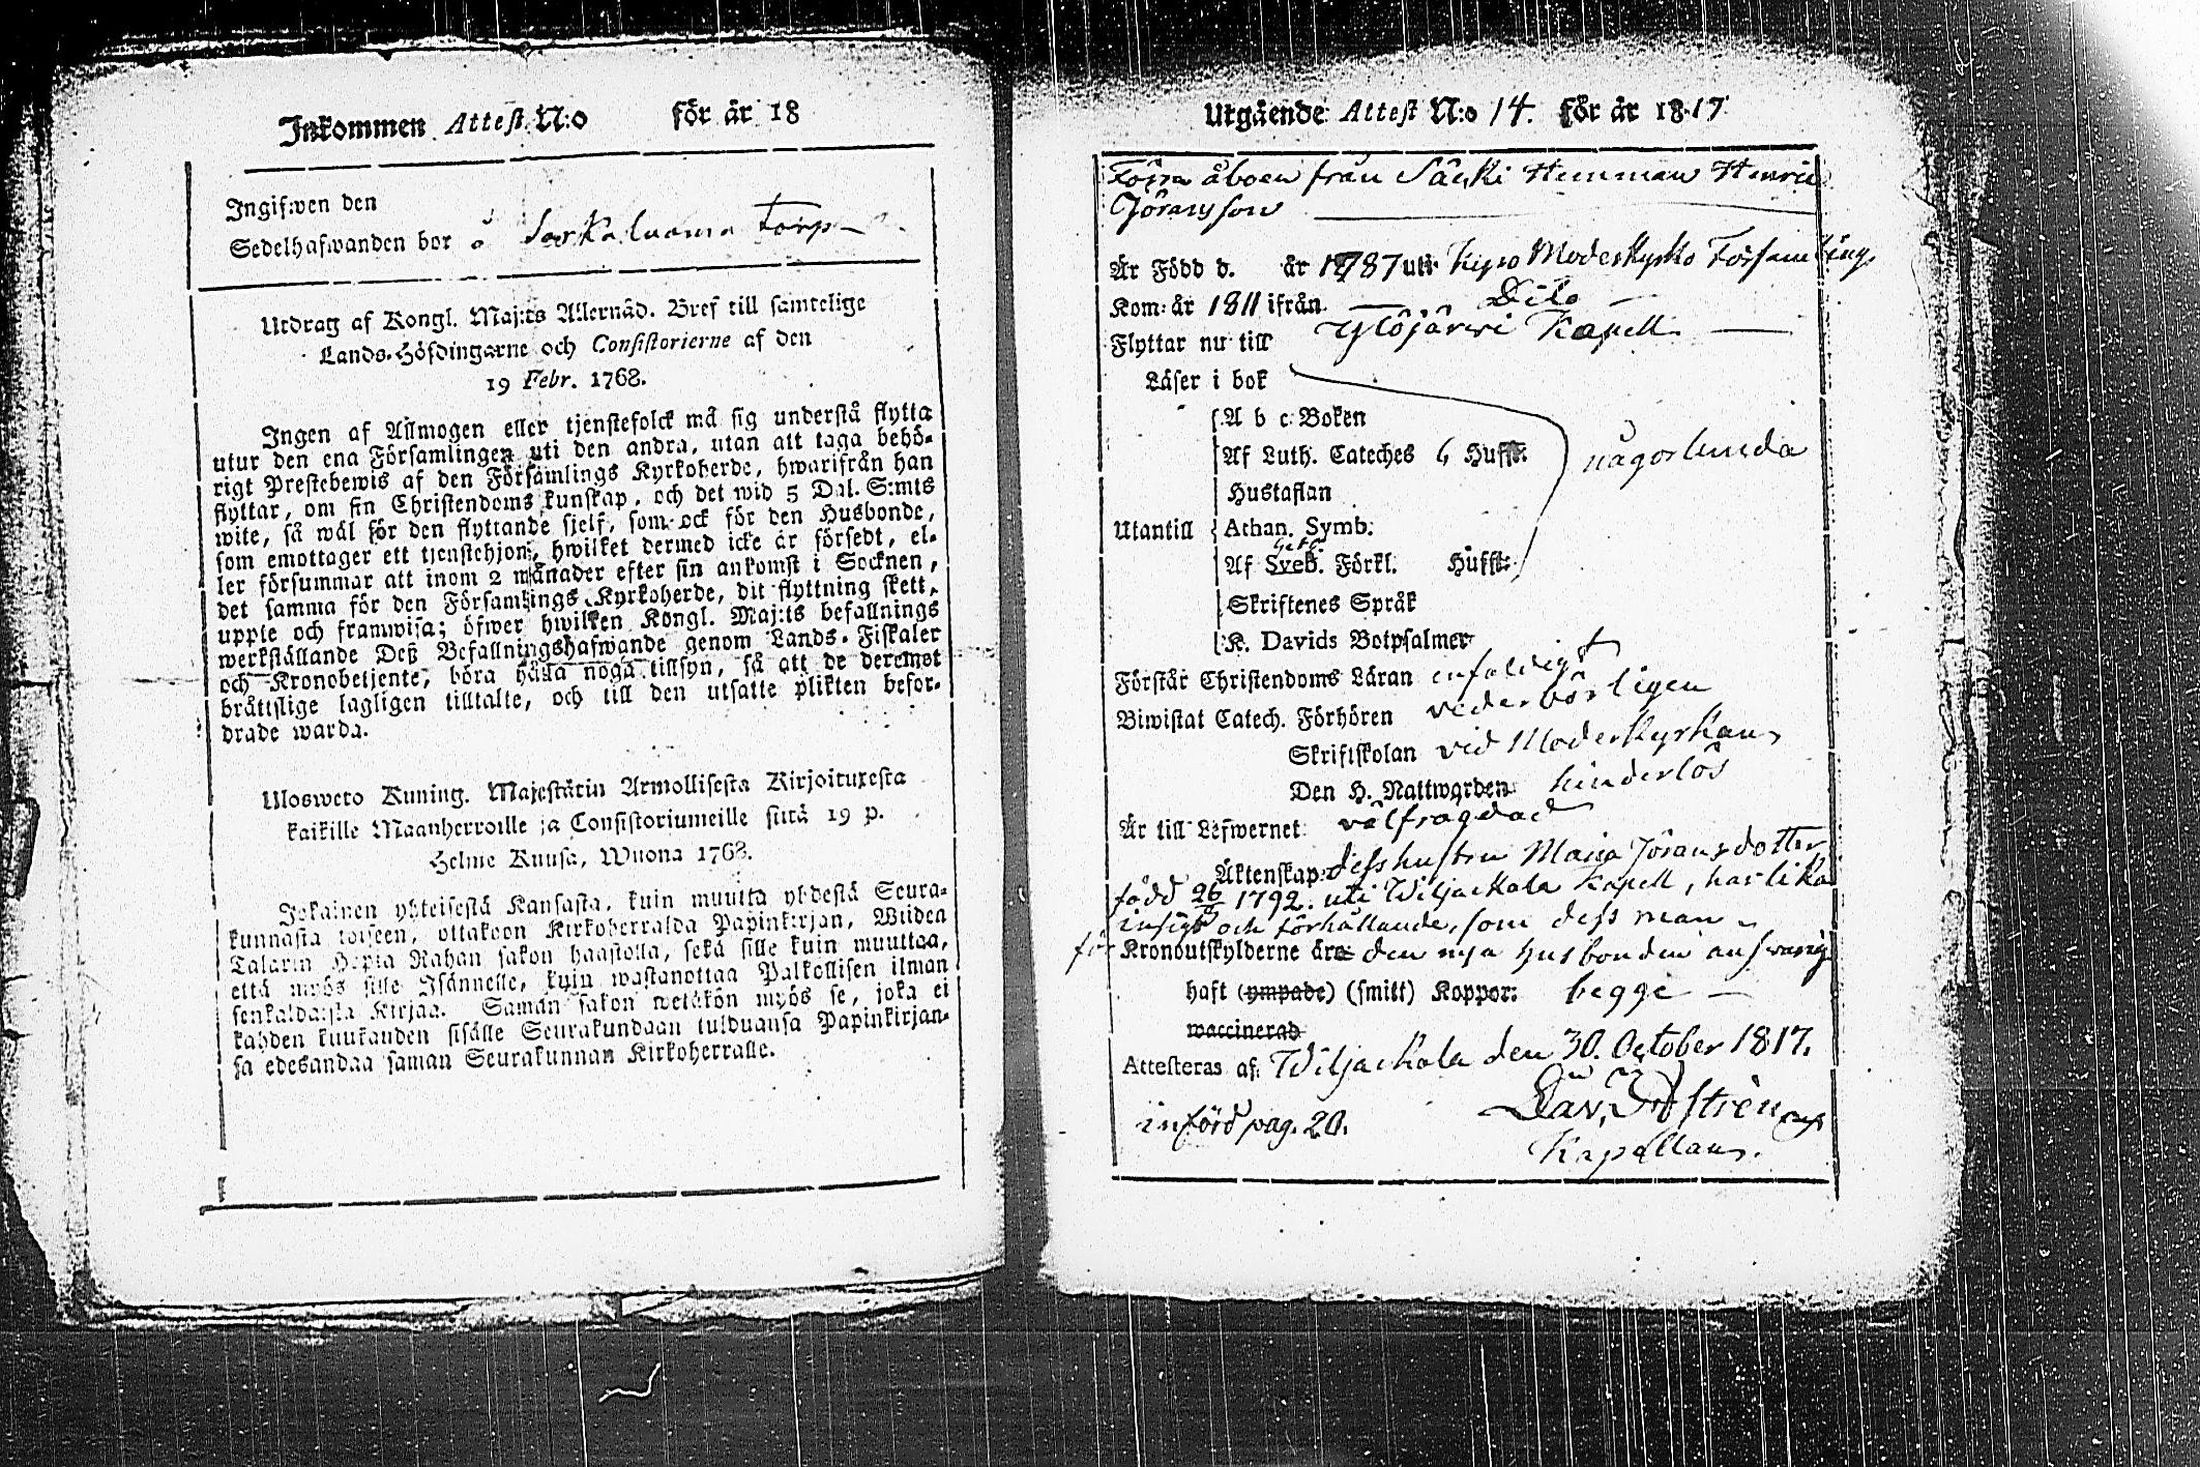 Inkommen Attest N:o för år 18
Ingifwen den
Sedelhafwanden bor å Sarkaluoma Torp
Utdrag af Kongl. Maj:ts Allernåd. Bref till samtelige
Lands-Höfdingarne och Consistorierne af den
19 Febr. 1768.
Ingen af Allmogen eller tjenstefolck må sig understå flytta
utur den ena Församlingen uti den andra, utan att taga behö-
rigt Prestebewis af den Församlings Kyrkoherde, hwarifrån han
flyttar, om sin Christendoms kunskap, och det wid 5 Dal. S:mts
wite, så wäl för den flyttande sjelf, som ock för den Husbonde,
som emottager ett tjenstehjon, hwilket dermed icke är försedt, el-
ler försummar att inom 2 månader efter sin ankomst i Socknen,
det samma för den Församlings Kyrkoherde, dit flyttning skett,
uppte och framwisa; öfwer hwilken Kongl. Maj:ts befallnings
werkställande Deß Befallningshafwande genom Lands-Fiskaler
och Kronobetjente, böra hålla noga tillsyn, så att de deremot
bråttslige lagligen tilltalte, och till den utsatte plikten befor-
drade warda.
Ulosweto Kuning. Majestätin Armollisesta Kirjoituxesta
kaikille Maanherroille ja Consistoriumeille siitä 19 p.
Helme Kuusa, Wuona 1768.
Jokainen yhteisestä Kansasta, kuin muutta yhdestä Seura-
kunnasta toiseen, ottakoon Kirkoherralda Papinkirjan, Wiiden
Talarin Hopia Rahan sakon haastolla, sekä sille kuin muuttaa,
että myös sille Isännelle, kuin wastanottaa Palkollisen ilman
senkaldaista Kirjaa. Saman sakon wetäkön myös se, joka ei
kahden kuukauden sisälle Seurakundaan tulduansa Papinkirjan-
sa edesandaa saman Seurakunnan Kirkoherralle.
Utgående Attest N:o 14. för år 1817
Förra åboen från Säkki Hemman Henric
Jöransson
Är Född d. år 1787 uti Kyro Moderkyrko Församling.
Kom: år 1811 ifrån Dito
Flyttar nu till Ylöjärvi Kapell
Läser i bok
A b c Boken
Af Luth. Cateches 6 Hufst:
någorlunda
Hustaflan
Utantill Athan. Symb:
Af Sveb. Förkl. Hufst:
Skriftenes Språk
K. Davids Botpsalmer
Förstår Christendoms Läran enfaldigt
Biwistat Catech. Förhören vederbörligen
Skriftskolan vid Moderkyrkan
Den H. Nattwarden hinderlös
Är till Lefwernet välfrägdad
Äktenskap: dess hustru Maria Jöransdotter
född 26/ 1792. uti Wiljackala Kapell, har lika
insigt och förhållande, som dess man
för Kronoutskylderne äro den nya husbonden answarig
haft (ympade) (smitt) Koppor: begge
waccinerad
Attesteras af: Wiljackala den 30. October 1817.
införd pag. 20.
Kapellan.